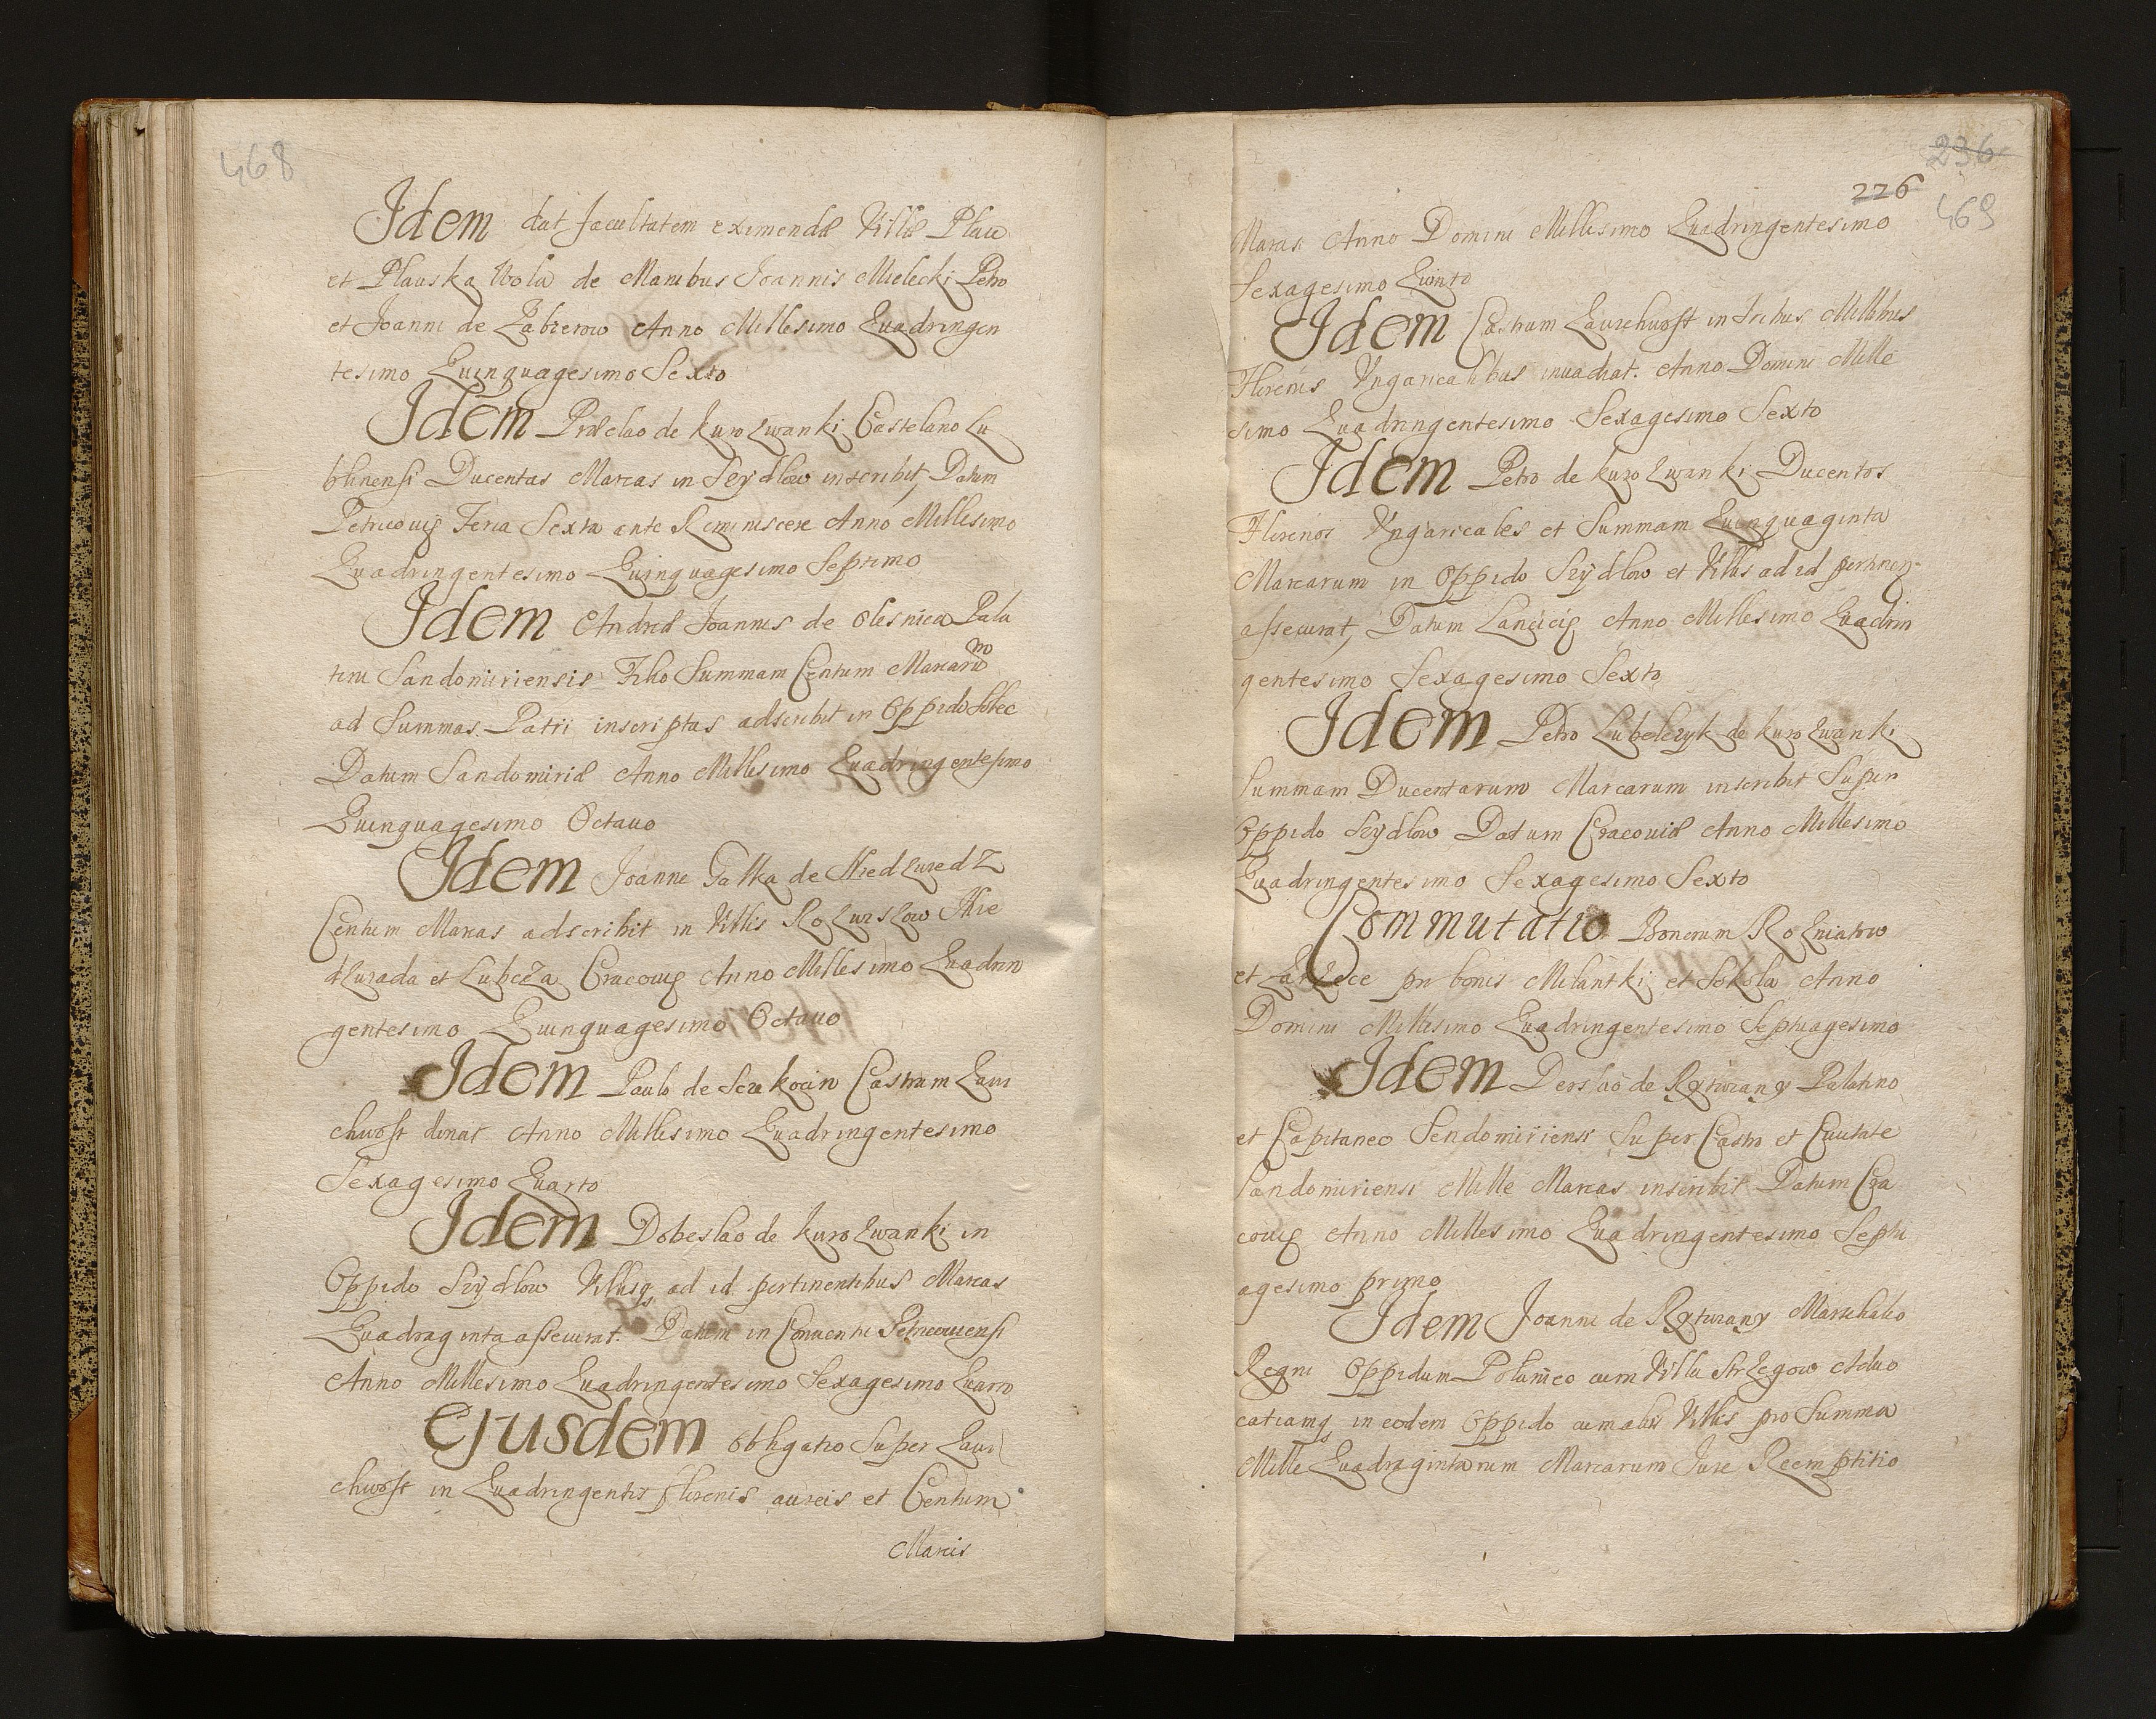 468
Idem dat facultatem eximendæ Villæ Plaw
et Plauska Wola de Manibus Joannis Mielecki Petro
et Joanni de Zabierow Anno Millesimo Quadringen
tesimo Quinquagesimo Sexto
Idem Præclao de Kurozwanki Castelano Lu
blinensi Ducentas Marcas in Szydlow inscribit, Datum
Petricoviæ Feria Sexta ante Reminiscere Anno Millesimo
Quadringentesimo Quinquagesimo Septimo
Idem Andreæ Joannis de Olesnica Pala
tini Sandomiriensis Filio Summam Centum Marcarum
ad Summas Patri inscriptas adscribit in Oppido Solec
Datum Sandomiriæ Anno Millesimo Quadringentesimo
Quinquagesimo Octauo
Idem Joanni Galka de Niedzwedz
Centum Marcas adscribit in Villis Rozwislow Nie
dzwiada et Lubcza Cracoviæ Anno Millesimo Quadrin
gentesimo Quinquagesimo Octauo
Idem Paulo de Secekocin Castrum Zawi
chwost donat Anno Millesimo Quadringentesimo
Sexagesimo Quarto
Idem Dobeslao de Kurozwanki in
Oppido Szydlow Villisq ad id pertinentibus Marcas
Quadraginta assecurat. Datum in Conuentu Petricouiensi
Anno Millesimo Quadringentesimo Sexagesimo Quarto
Ejusdem obligatio Super Zawi
chwost in Quadringentis florenis aureis et Centum
Marcis
236
226
469
Marcis Anno Domini Millesimo Quadringentesimo
Sexagesimo Quinto
Idem Castrum Zawichwost in Tribus Millibus
Florenis Vngaricalibus inuadiat. Anno Domini Mille
simo Quadringentesimo Sexagesimo Sexto
Idem Petro de Kurozwanki Ducentos
Florenos Vngaricales et Summam Quinquaginta
Marcarum in Oppido Szydlow et Villis ad id pertinen.
assecurat, Datum Lanciciæ Anno Millesimo Quadrin
gentesimo Sexagesimo Sexto
Idem Petro Lubelczyk de Kurozwanki
Summam Ducentarum Marcarum inscribit Super
Oppido Szydlow Datum Cracouiæ Anno Millesimo
Quadringentesimo Sexagesimo Sexto
Commutatio Bonorum Rozniatow
et Zarzece pro bonis Milantki et Sokola Anno
Domini Millesimo Quadringentesimo Septuagesimo
Idem Derslao de Rytwiany Palatino
et Capitaneo Sendomiriensi Super Castro et Ciuitate
Sandomiriensi Mille Marcas inscribit Datum Cra
couiæ Anno Millesimo Quadringentesimo Septu
agesimo primo
Idem Joanni de Rytwiany Marschalco
Regni Oppidum Polaniec cum Villa Strzegow Aduo
catiamq in eodem Oppido cum alijs Villis pro Summa
Mille Quadragintarum Marcarum Jure Reemptitio